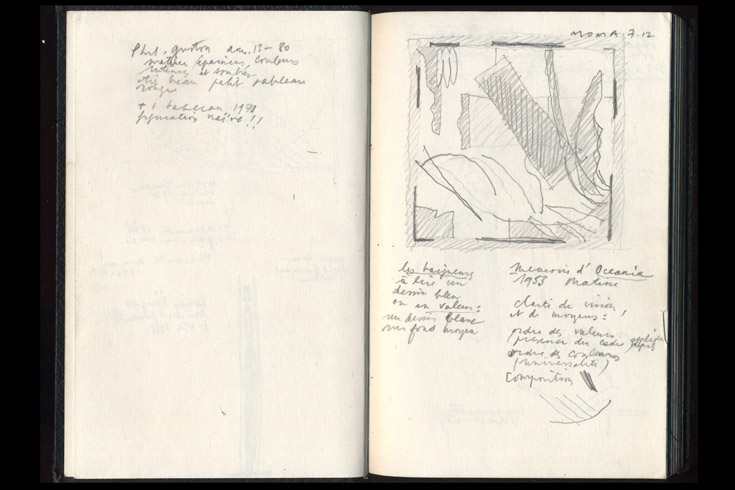 Phil. Guston ann. 13 - 80
matière épaisse, couleurs
intenses et sombres
très beau petit tableau
rouges
+ 1 tableau 1978
figuration naïve !!
MOMA 7.12
les baigneurs
à lire en
dessin bleu
ou en valeur :
un dessin blanc
sur fond moyen
Memories d' Oceania
1953 Matisse
clarté de vision,
et de moyens :
ordre des valeurs
(présence du cadre
ordre de couleurs
(universalité)
Composition